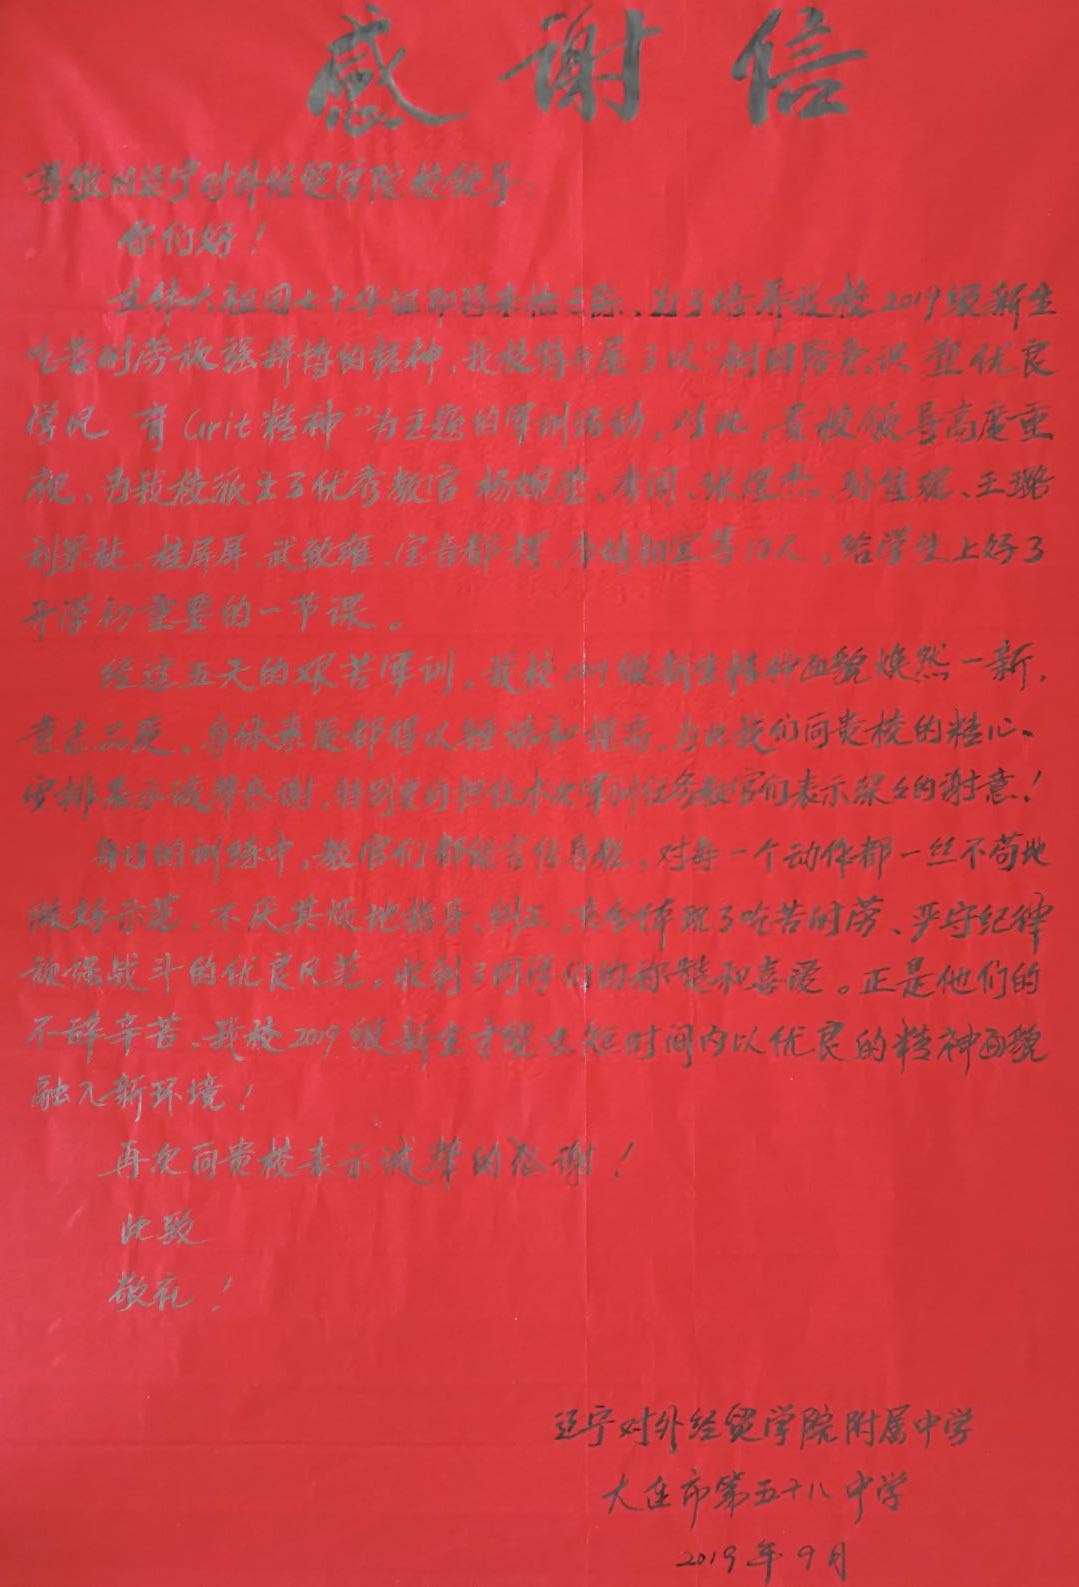 感谢信
尊敬的辽宁对外经贸学院校领导：
你们好！
在伟大祖国七十华诞即将来临之际，为了培养我校2019级新生
吃苦耐劳顽强拼搏的精神，我校特开展了以“树国防意识 塑优良
学风 育Grit精神”为主题的军训活动。对此，贵校领导高度重
视、为我校派出了优秀教官 杨婉莹、李闯、张煜杰、孙佳妮、王璐
桂屏屏、武敏雍、宝音都楞、李婧等10人，给学生上好了
开学初重要的一节课。
经过五天的艰苦军训，我校2019级新生精神面貌焕然一新，
意志品质、身体素质都得以锤炼和提高，为此我们向贵校的精心
安排表示诚挚感谢，特别要向担任本次军训任务教官们表示深深的谢意！
每日的训练中，教官们都能言传身教，对每一个动作都一丝不苟地
做好示范，不厌其烦地指导、纠正，充分体现了吃苦耐劳、严守纪律
顽强战斗的优良风范，收到了同学们的称赞和喜爱。正是他们的
不辞辛苦、我校2019级新生才能在短时间内以优良的精神面貌
融入新环境！
再次向贵校表示诚挚的感谢！
此致
敬礼！
辽宁对外经贸学院附属中学
大连市第五十八中学
2019年9月